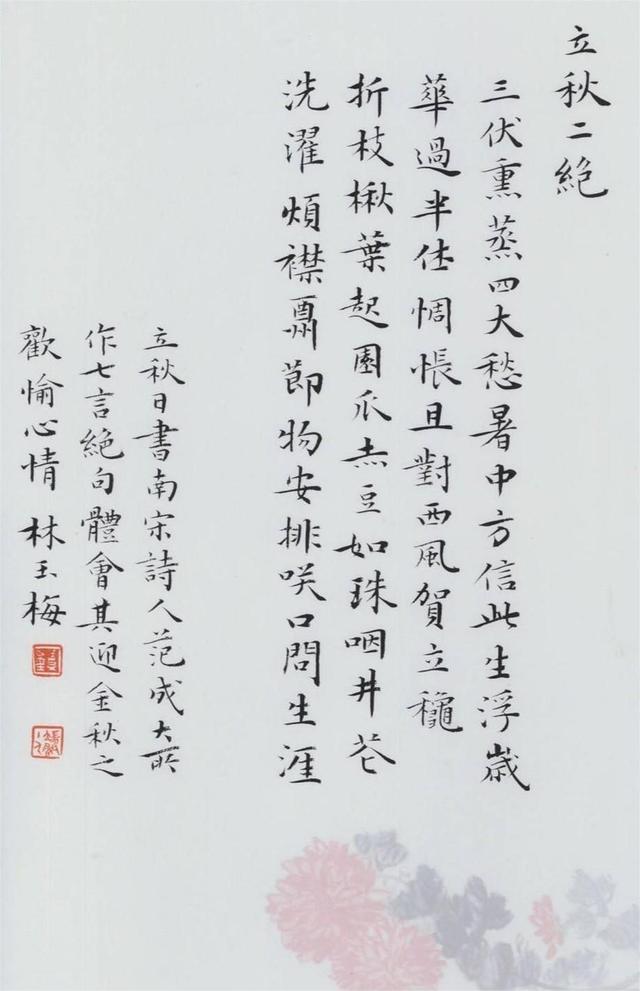 立秋二絶
三伏熏蒸四大愁暑中方信此生浮歲
華過半休惆悵且對西風賀立龝
折枝楸葉起園瓜赤豆如珠咽井花
洗濯煩襟酬節物安排咲口問生涯
立秋日書南宋詩人范成大所
作七言絶句體會其迎金秋之
歡愉心情 林玉梅